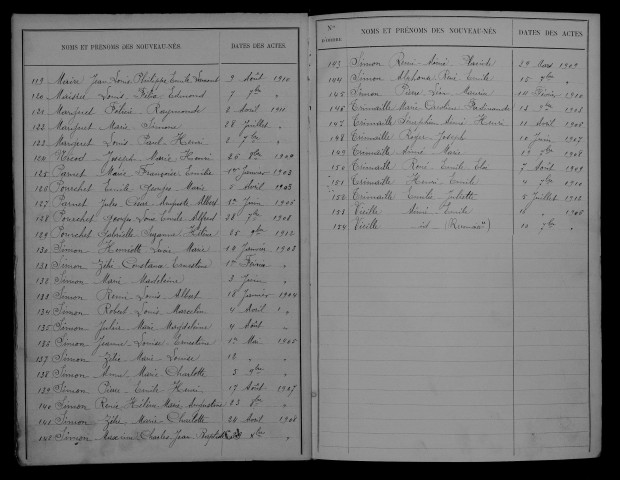 NOMS ET PRÉNOMS DES NOUVEAU-NÉS. DATES DES ACTES.
119 Maire Jean Louis Philippe Emile 9 Août 1910
120 Louis Edmond 7 7bre "
121 Margueret Félicie Raymonde 2 Août 1911
122 Margueret Marie Simone 28 Juillet "
123 Margueret Louis Paul Henri 2 7bre "
124 Nicod Joseph Marie Henri 26 8bre 1904
125 Parnet Marie Françoise Emilie 1er Janvier 1903
126 Pourchet Emile Georges Marie 2 Avril 1903
127 Parnet Jules César Auguste Albert 1er Juin 1906
128 Pourchet Georges Louis Emile Alfred 28 7bre 1908
129 Pourchet Gabrielle Suzanne Hélène 25 9bre 1912
130 Simon Henriette Marie 10 Janvier 1903
131 Simon Zélie Constance Ernestine 1er Février "
132 Simon Marie Madeleine 3 Juin "
133 Simon Remi Louis Albert 18 Janvier 1904
134 Simon Robert Louis Marcelin 4 Avril "
135 Simon Juliette Marie Magdeleine 4 Août "
136 Simon Jeanne Louise Ernestine 1er Mai 1905
137 Simon Zélie Marie Louise 18 "
138 Simon Anna Marie Charlotte 3 9bre "
139 Simon Pierre Emile Henri 17 Août 1907
140 Simon Renée Hélène Marie Augustine 23 8bre "
141 Simon Zélie Marie Charlotte 24 Avril 1908
142 Simon Maxime Charles Jean Baptiste Xbre "
Nos D'ORDRE NOMS ET PRÉNOMS DES NOUVEAU-NÉS. DATES DES ACTES.
143 Simon Remi Aimé 29 Mars 1909
144 Simon Alphonse René Emile 15 7bre "
145 Simon Pierre Léon Maurice 10 Février 1910
146 Trimaille Marie Caroline Ferdinande 12 9bre 1905
147 Trimaille Séraphin Aimé Henri 11 Avril 1906
148 Trimaille Roger Joseph 10 Juin 1907
149 Trimaille Aimé Marie 19 7bre 1908
150 Trimaille René Emile Eloi 7 Août 1909
151 Trimaille Henri Emile 4 7bre 1910
152 Trimaille Emile Juliette 2 Juillet 1912
153 Vieille Aimé Emile 1906
154 Vieille id 10 7bre "